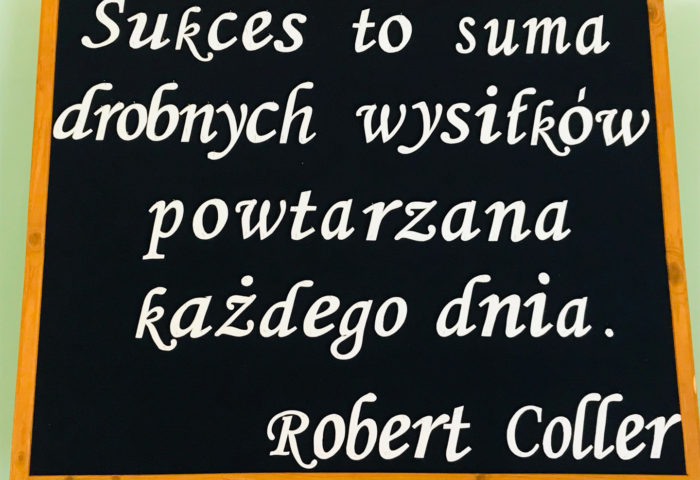 Sukces to suma
drobnych wysiłków
powtarzana
każdego dnia.
Robert Coller